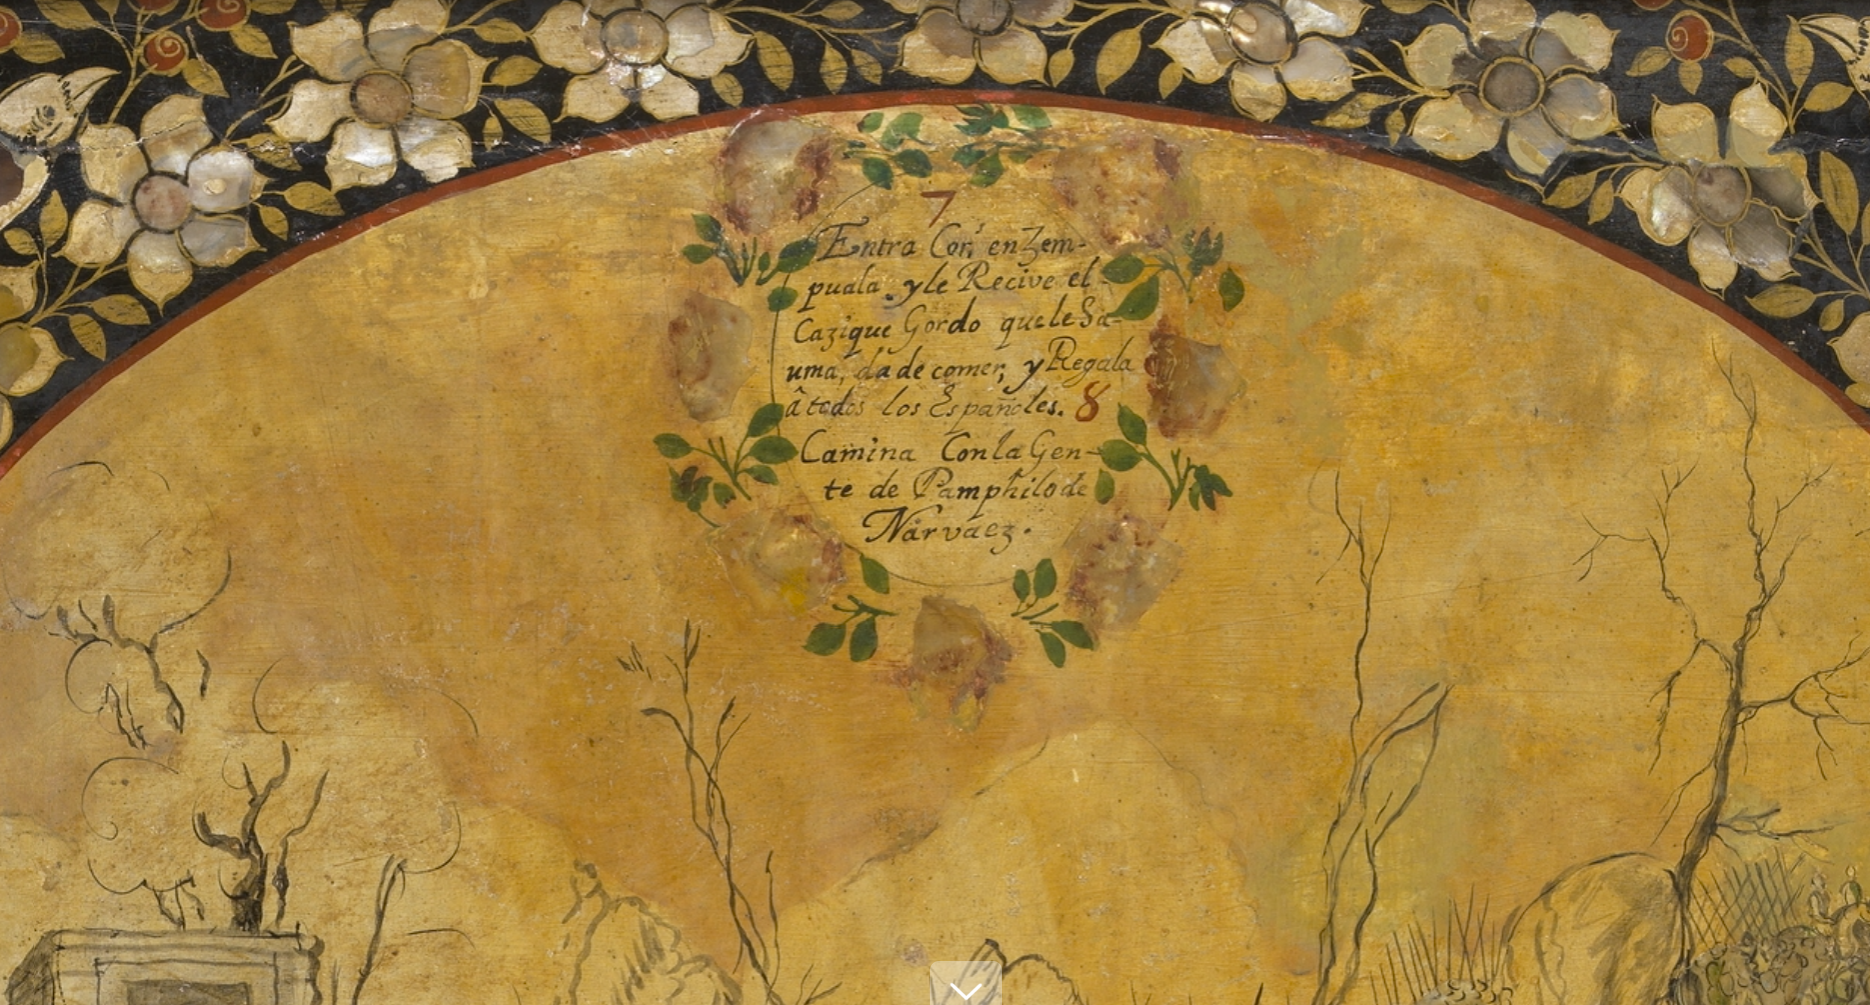 7
Entra Cor.ˢ en Zem-
puala y le Recive el
Cazique Gordo que le Sa-
uma, da de comer, y Regala
â todos los Españoles. 8
Camina Con la Gen-
te de Pamphilo de
Narvaez.